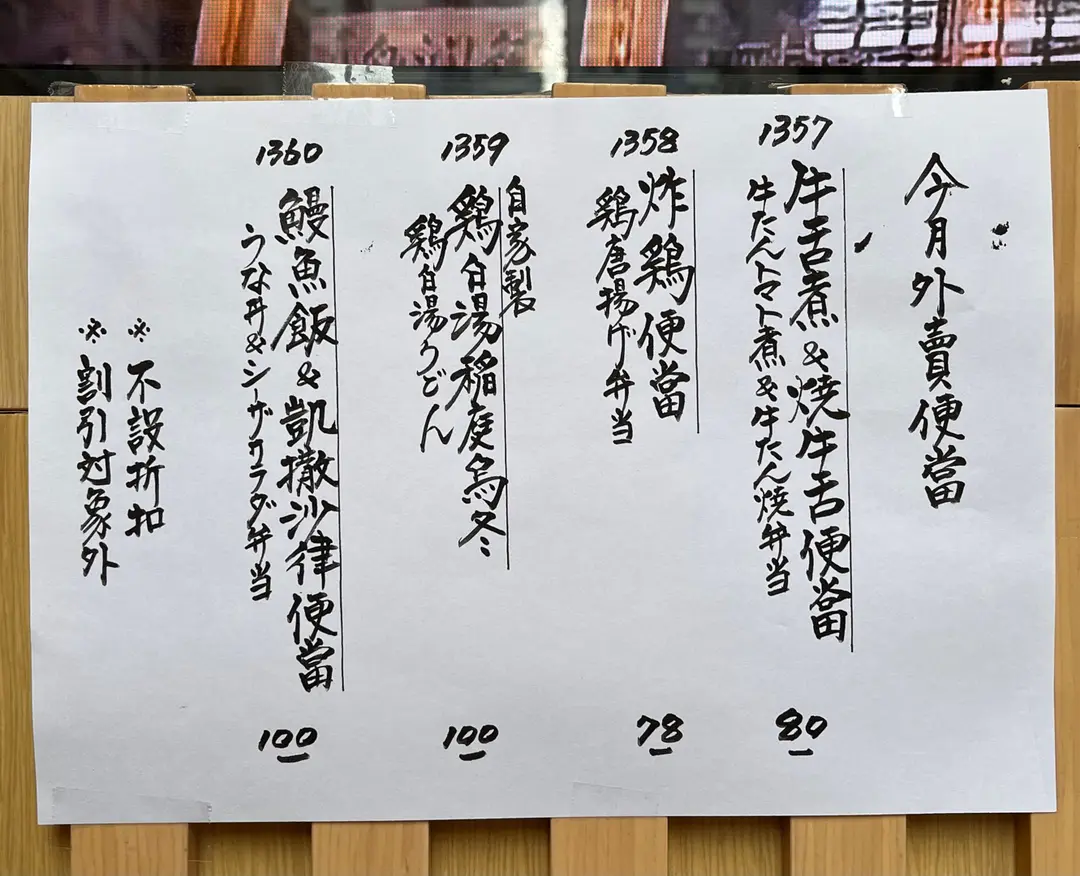 今月外賣便當
1357
牛舌煮&燒牛舌便當
牛たんトマト煮&牛たん焼弁当
80
1358
炸鶏便當
鶏唐揚げ弁当
78
1359
自家製
鶏白湯稲庭烏冬
鶏白湯うどん
100
1360
鰻魚飯&凱撒沙律便當
うな丼&シーザーサラダ弁当
100
※不設折扣
※割引対象外